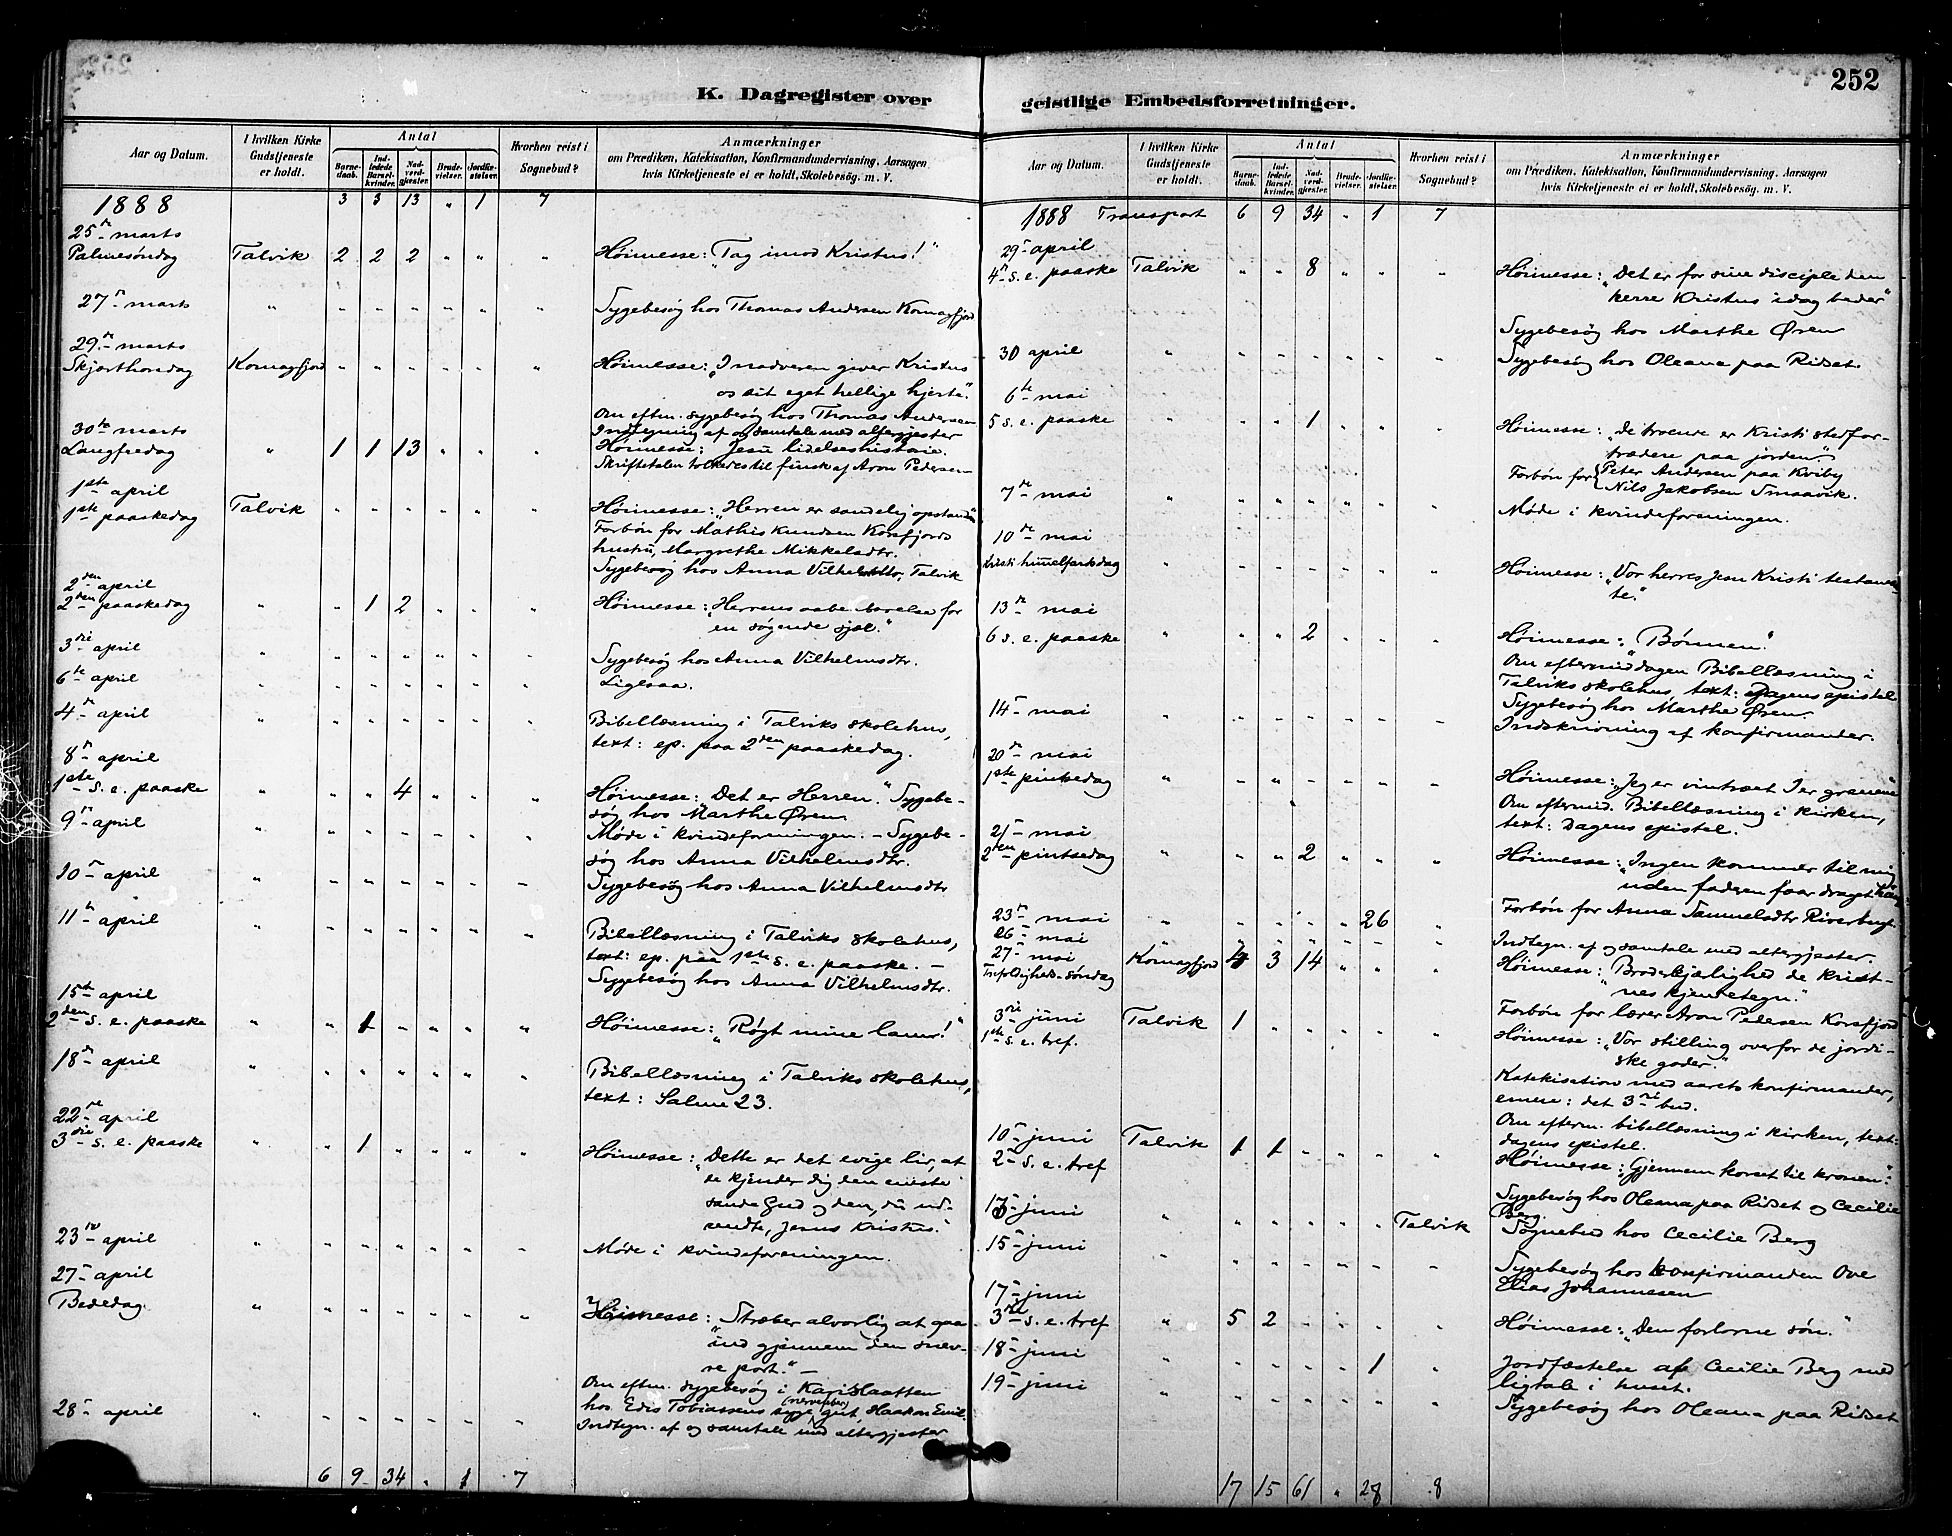 252
K. Dagregister over
geistlige Embedsforretninger.
Aar og Datum.
I hvilken Kirke Gudstjeneste er holdt.
Antal
Barnedaab.
Indledede Barselkvinder.
Nadverdgjester.
Brudevielser.
Jordfæstelser.
Hvorhen reist i Sognebud?
Anmærkninger
om Prædiken, Katekisation, Konfirmandundervisning, Aarsagen
hvis Kirketjeneste ei er holdt, Skolebesøg. m. V.
1888 3 3 13 " 1 7
25de marts
Palmesøndag Talvik 2 2 2 " " " Høimesse: "Tag imod Kristus!"
27de marts " " " " " " " Sygebesøg hos Thomas Andersen Komagfjord
29de marts
Skjærthorsdag Komagfjord " " " " " " Høimesse: "I nadveren giver Kristus
os sit eget hellige hjerte."
Om efterm. sygebesøg hos Thomas Andersen
30te marts Indtegning af og samtale med altergjester
Langfredag " 1 1 13 " " " Høimesse: Jesu lidelseshistorie.
Skriftetalen tolkedes til finsk af Aron Pedersen
1ste april
1ste paaskedag Talvik " " " " " " Høimesse: "Herren er sandelig opstanden"
Forbøn for Mathis Knudsen Korsfjords
hustru, Margrethe Mikkelsdtr.
Sygebesøg hos Anna Talvik
2den april
2den paaskedag " " 1 2 " " " Høimesse: "Herrens aabenbarelse for
en søgende sjæl."
3die april " " " " " " " Sygebesøg hos Anna Vilhelmsdtr.
6te april " " " " " " " Ligesaa.
4de april " " " " " " " Bibellæsning i Talviks skolehus,
text: ep. paa 2den paaskedag.
8de april
1ste s. e. paaske " " " 4 " " " Høimesse: "Det er Herren." Sygebe-
søg hos Marthe Øren
9de april " " " " " " " Møde i kvindeforeningen. - Sygebe-
søg hos Anna Vilhelmsdtr.
10de april " " " " " " " Sygebesøg hos Anna Vilhelmsdtr
11te april " " " " " " " Bibellæsning i Talviks skolehus,
text: ep. paa 1ste s. e. paaske. -
Sygebesøg hos Anna Vilhelmsdtr.
15de april
2den s. e. paaske " " 1 " " " " Høimesse: "Røgt mine lam!"
18de april " " " " " " " Bibellæsning i Talviks skolehus,
text: Salme 23.
22de april
3die s. e. paaske " " 1 " " " " Høimesse: "Dette er det evige liv, at
de kjender dig den eneste
sande Gud og den, du ud-
sendte, Jesus Kristus."
23de april " " " " " " " Møde i kvindeforeningen.
27de april
Bededag " " " " " " " Høimesse: "Stræber alvorlig at gaa
ind gjennem den snæv-
re port." -
Om efterm. sygebesøg i Karislaatten
hos Edis Tobiassens syge gut, Haakon Emil.
28de april " " " " " " " Indtegn. af og samtale med altergjester
6 9 34 " 1 7
Aar og Datum.
I hvilken Kirke Gudstjeneste er holdt.
Antal
Barnedaab.
Indledede Barselkvinder.
Nadverdgjester.
Brudevielser.
Jordfæstelser.
Hvorhen reist i Sognebud?
Anmærkninger
om Prædiken, Katekisation, Konfirmandundervisning, Aarsagen
hvis Kirketjeneste ei er holdt, Skolebesøg. m. V.
1888 Transport 6 9 34 " 1 7
29de april
4de s. e. paaske Talvik " " 8 " " " Høimesse: "Det er for sine disciple den
herre Kristus idag beder"
Sygebesøg hos Marthe Øren
30 april " " " " " " " Sygebesøg hos Oleana paa Ridset.
6te mai
5 s. e. paaske " " " 1 " " " Høimesse: "De troende er Kristi stedfor-
trædere paa jorden."
Forbøn for Peter Andersen paa Kviby
Nils Jakobsen Smaavik.
7de mai " " " " " " " Møde i kvindeforeningen.
10de mai
Kristi himmelfartsdag " " " " " " " Høimesse: "Vor herres Jesu Kristi testamen-
te."
13de mai
6 s. e. paaske " " " 2 " " " Høimesse: "Bønnen."
Om eftermiddagen Bibellæsning i
Talviks skolehus, text: Dagens epistel
Sygebesøg hos Marthe Øren
14de mai " " " " " " " Indskrivning af konfirmander.
20de mai
1ste pintsedag " " " " " " " Høimesse: "Jeg er vintræet I er grenene"
Om eftermid. Bibellæsning i kirken,
text: Dagens epistel.
21de mai
2den pintsedag " " " 2 " " " Høimesse: "Ingen kommer til mig
uden faderen faar draget ham"
Forbøn for Anna Samuelsdtr
23de mai " " " " " 26 "
26de mai " " " " " " " Indtegn. af og samtale med altergjester.
27de mai
Trefoldigheds-søndag Komagfjord 4 3 14 " " " Høimesse: "Broderkjærlighed de krist-
nes kjendetegn."
Forbøn for lærer Aron Pedersen Korsfjord
3die juni Talvik 1 " " " " "
1ste s. e. tref. Høimesse: "Vor stilling overfor de jordi-
ske goder."
Katekisation med aarets konfirmander,
emne: det 3die bud.
Om efterm. bibellæsning i kirken, text:
dagens epistel.
10de juni Talvik 1 1 " " " "
2den s. e. tref Høimesse: "Gjennem korset til kronen."
Sygebesøg hos Oleana paa Ridset og Cecilie
Berg.
13de juni " " " " " " Talvik Sognebud hos Cecilie Berg
15de juni " " " " " " " Sygebesøg hos konfirmanden Ove
Elias Johannesen
17de juni
3die s. e. tref " 5 2 " " " " Høimesse: "Den fortorne søn."
18de juni " " " " " 1 " Jordfæstelse af Cecilie Berg med
ligtale i huset.
19de juni " " " " " " " Sygebesøg hos Oleana paa Ridset
17 15 61 " 28 8